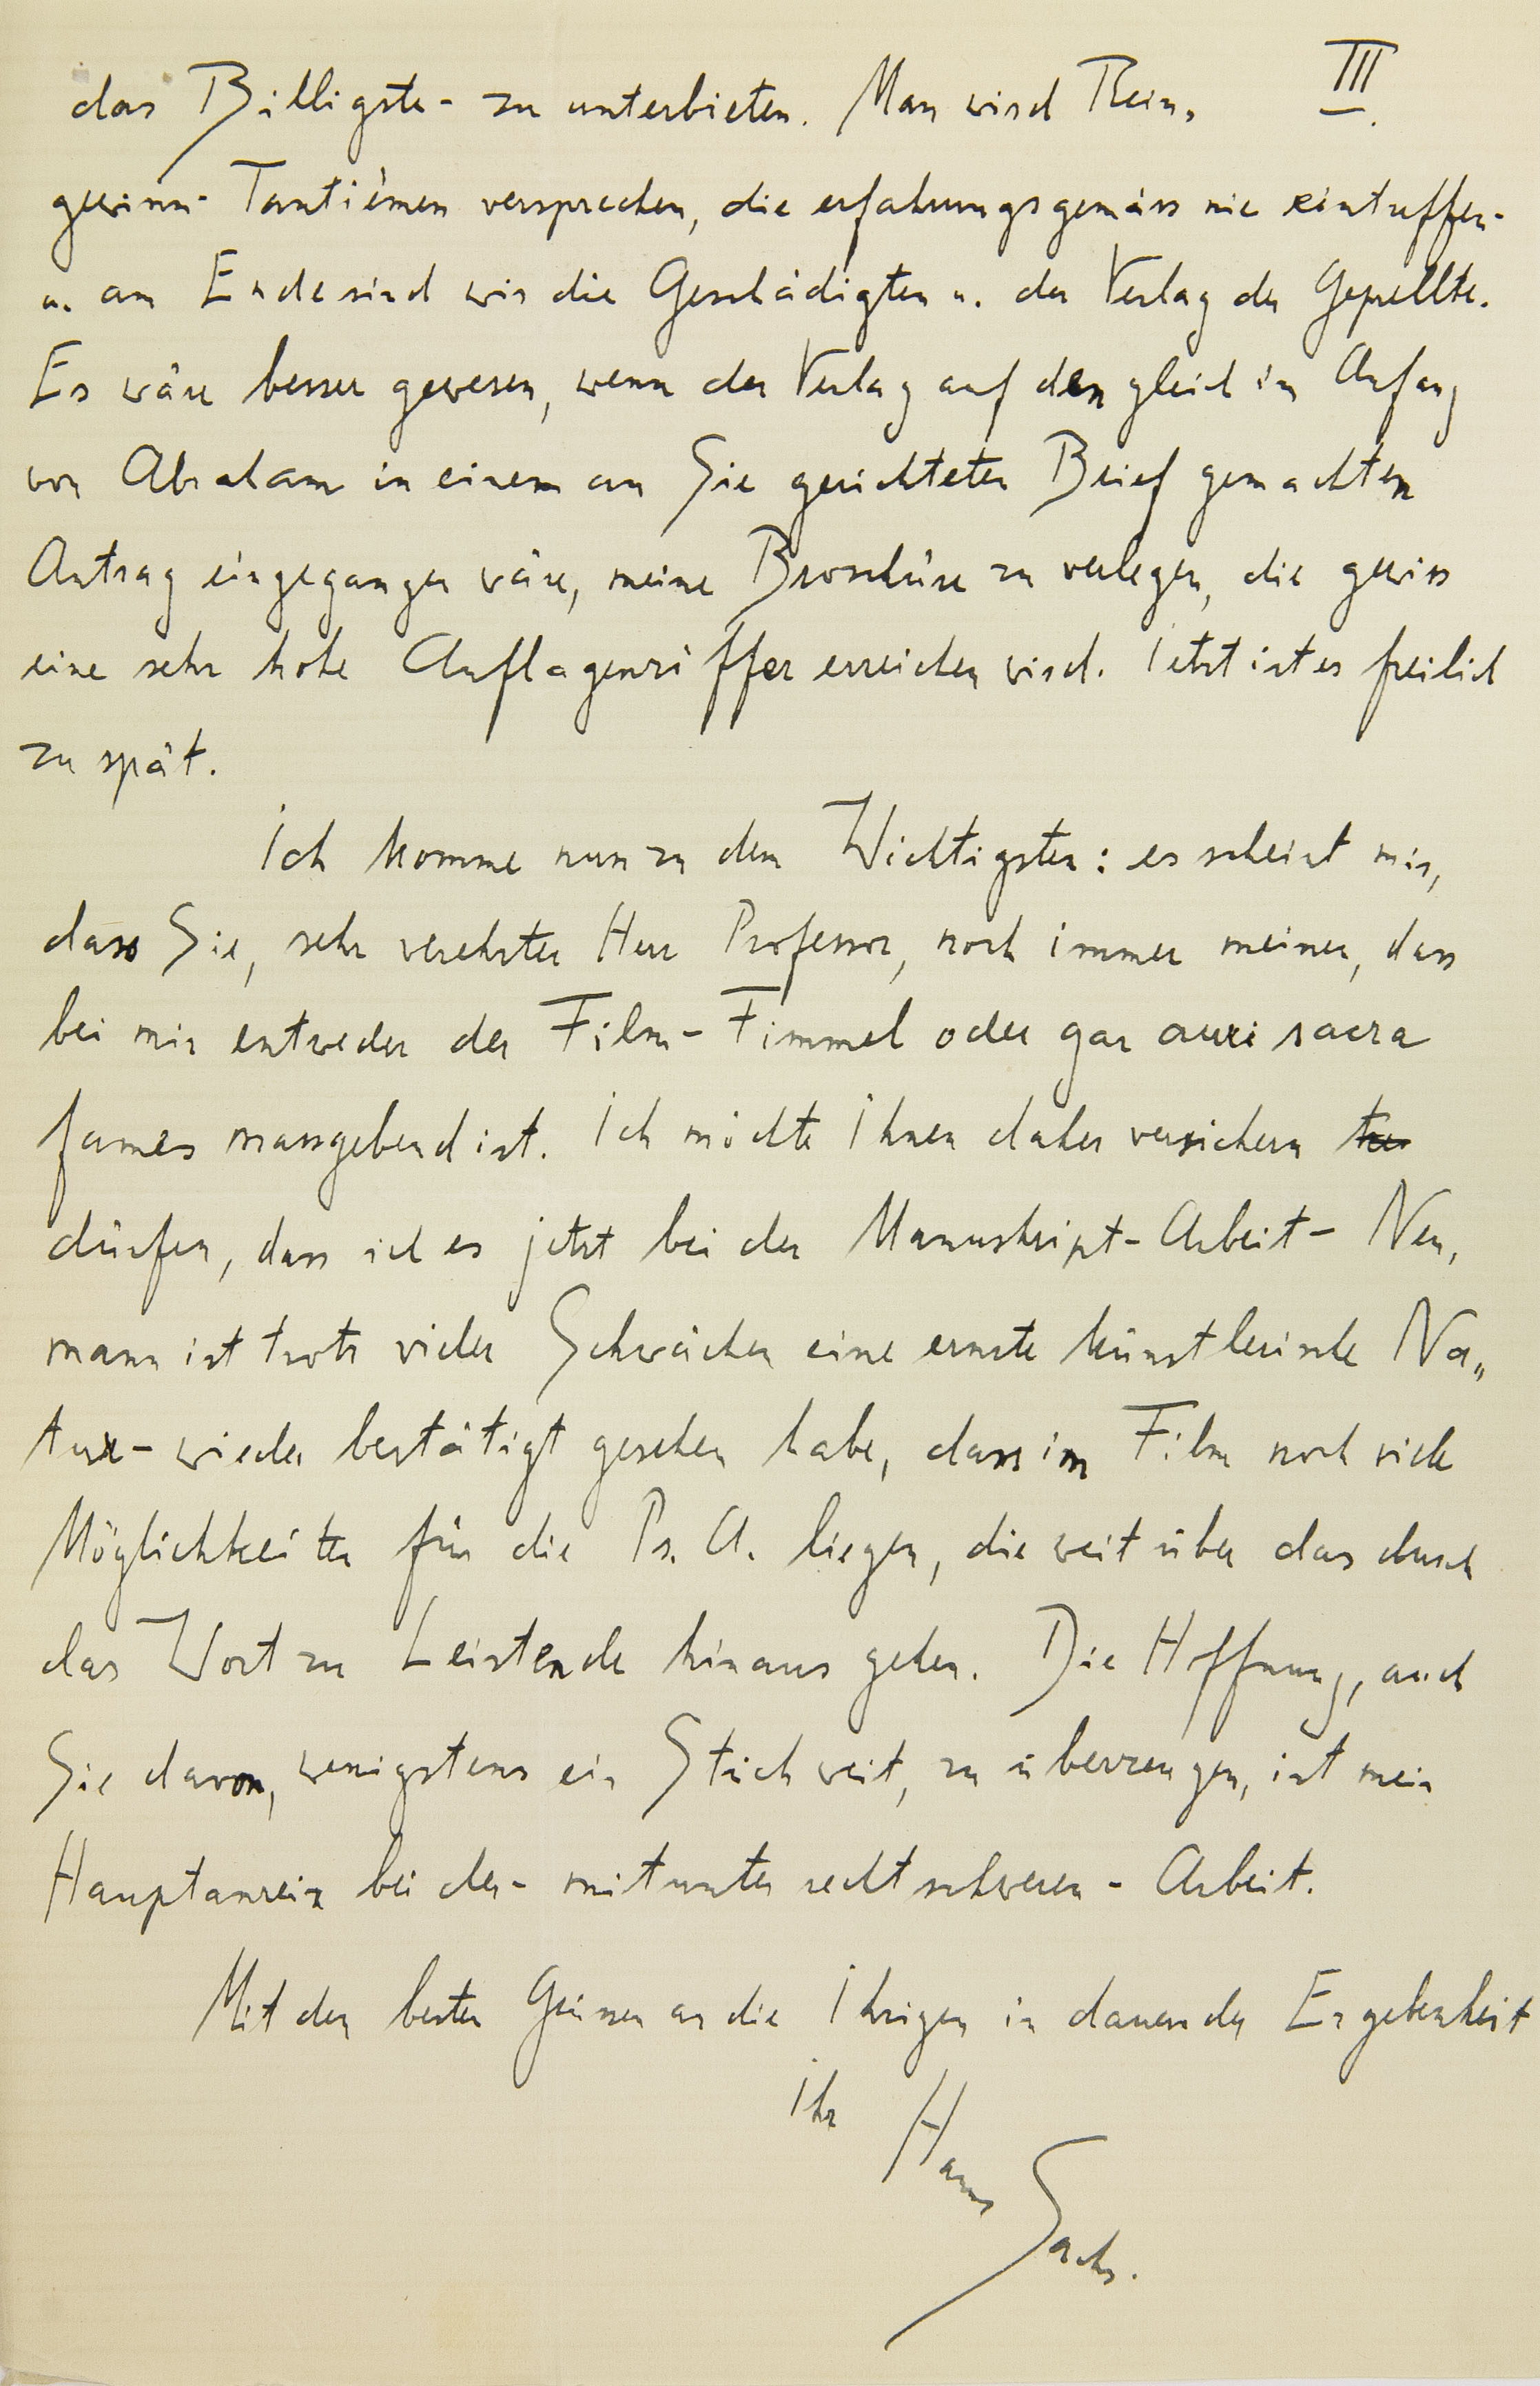 das Billigste - zu unterbieten. Man wird Rein, III.
gewinn-Tantièmen versprechen, die erfahrungsgemäss nie eintreffen -
u. am Ende sind wir die Geschädigten u. der Verlag der Geprellte.
Es wäre besser gewesen, wenn der Verlag auf den gleich im Anfang
von Abraham in einem an Sie gerichteten Brief gemachten
Antrag eingegangen wäre, meine Broschüre zu verlegen, die gewiss
eine sehr hohe Auflagenziffer erreichen wird. Jetzt ist es freilich
zu spät.
Ich komme nun zu dem Wichtigsten: es scheint mir,
dass Sie, sehr verehrter Herr Professor, noch immer meinen, dass
bei mir entweder der Film-Fimmel oder gar auri sacra
fames massgebend ist. Ich möchte Ihnen daher versichern
dürfen, dass ich es jetzt bei der Manuskript-Arbeit - Neu,
mann ist trotz vieler Schwächen eine ernste künstlerische Na„
tur - wieder bestätigt gesehen habe, dass im Film noch viele
Möglichkeiten für die Ps. A. liegen, die weit über das durch
das Wort zu Leistende hinaus gehen. Die Hoffnung, auch
Sie davon, wenigstens ein Stück weit, zu überzeugen, ist mein
Hauptanreiz bei der - mitunter recht schweren - Arbeit.
Mit den besten Grüssen an die Ihrigen in dauernder Ergebenheit
Ihr Hanns
Sachs.